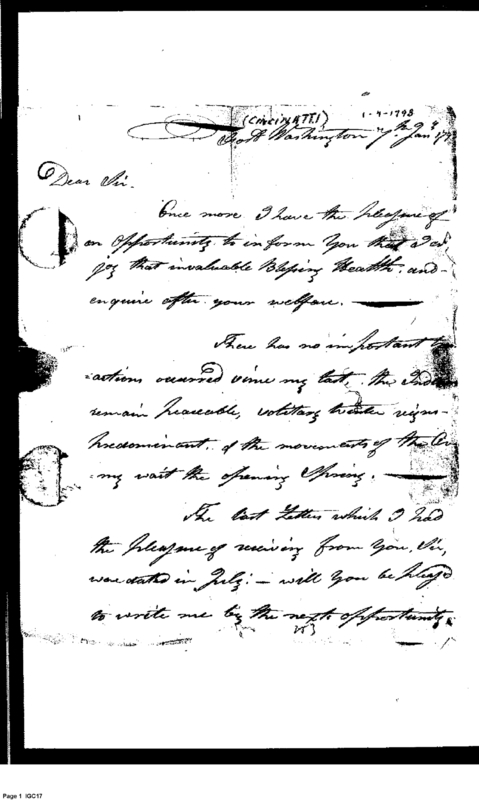 (CINCINATTI) 1-7-1793
Fort Washington 7th Jany 179
Dear Sir.
Once more I have the pleasure of
an Opportunity to inform You that I en
joy that invaluable Blessing Health. and
enquire after your welfare.
There has no important
actions occurred since my last, the Indians
remain peaceable, solitary Winter reigns
predominant. & the movements of the Ar
my wait the opening Spring.
The last Letter which I had
the pleasure of receiving from You, Sir,
was dated in July: — will You be pleas'd
to write me by the next opportunity.
Page 1 IGC17